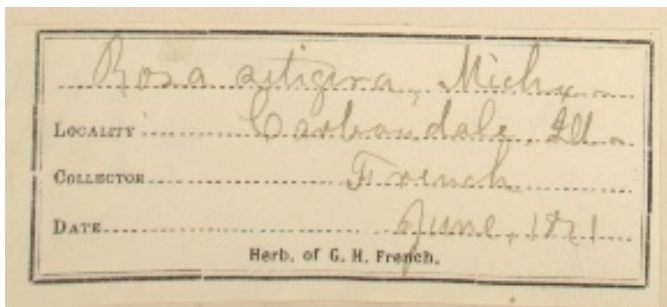 Rosa setigera, Michx.
LOCALITY Carbondale, Ill.
COLLECTOR French
DATE June, 1871
Herb. of G. H. French.